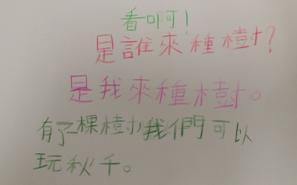 看啊！
是誰來種樹？
是我來種樹。
有了棵樹我們可以
玩秋千。